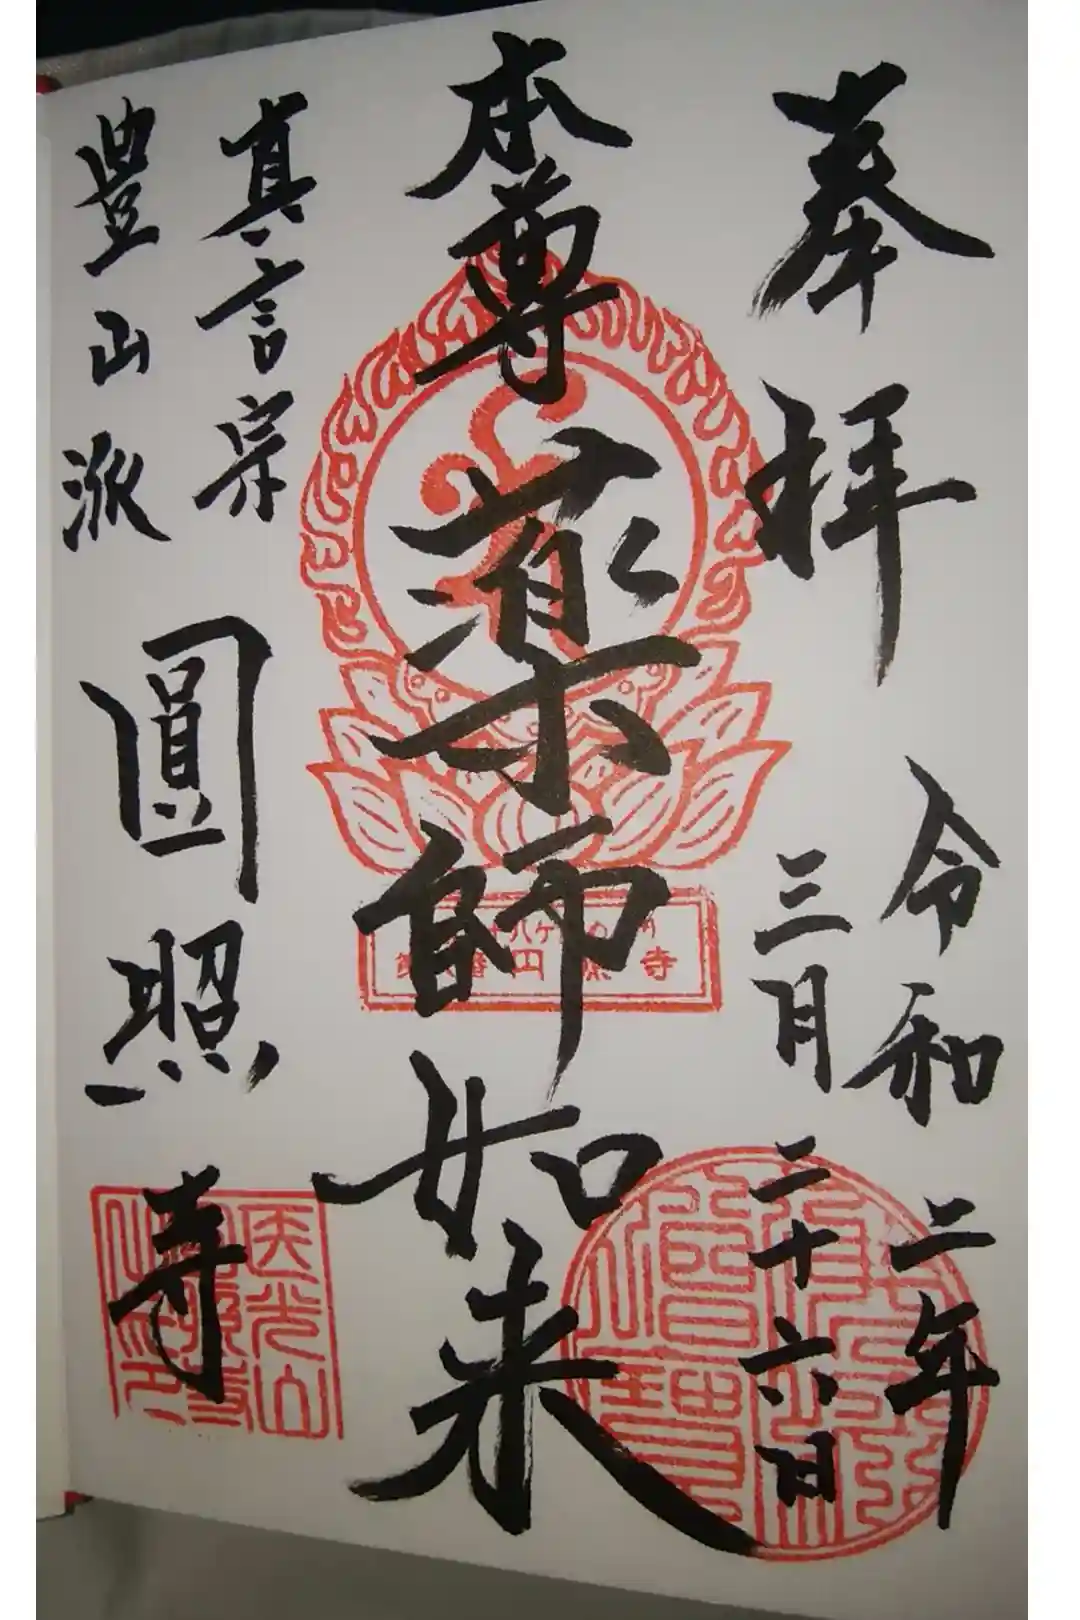 奉拝
令和二年
三月二十六日
本尊
薬師如来
真言宗
豊山派
圓照寺
円照寺
医光山